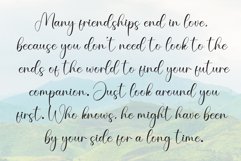 Many friendships end in love,
because you don't need to look to the
ends of the world to find your future
companion. Just look around you
first. Who knows, he might have been
by your side for a long time.